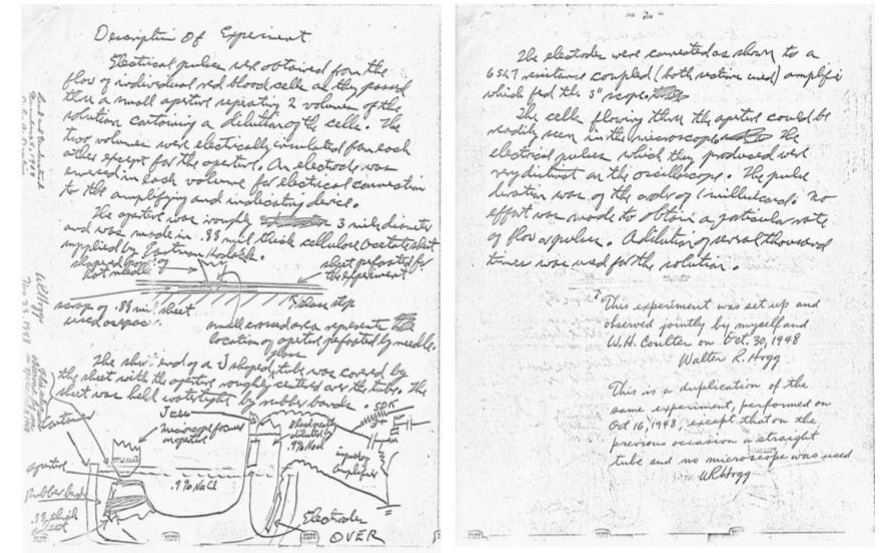 Description Of Experiment
Electrical pulses were obtained from the
flow of individual red blood cells as they passed
thru a small aperture separating 2 volumes of the
solution containing a dilution of the cells. The
two volumes were electrically insulated from each
other except for the aperture. An electrode was
immersed in each volume for electrical connection
to the amplifying and indicating device.
The aperture was roughly 3 mils diameter
and was made in .88 mil thick cellulose acetate sheet
supplied by Eastman Kodak Co.
shaped point of
hot needle
sheet perforated for
the experiment
scrap of .88 mil sheet
used as spacer.
glass strip
small crossed area represents the
location of aperture perforated by needle.
The short end of a J shaped glass tube was covered by
the sheet with the aperture roughly centered over the tube. The
sheet was held watertight by rubber bands.
container
Microscope focused
on aperture
aperture
rubber bands
.88 thick
sheet
.9% NaCl
Blood cells
diluted by
.9% NaCl
50K
input to
amplifier
Electrodes
OVER
- 2 -
The electrodes were connected as shown to a
6SL7 resistance coupled (both sections used) amplifier
which fed the 3" scope.
The cells flowing thru the aperture could be
readily seen in the microscope. The
electrical pulses which they produced were
very distinct on the oscilloscope. The pulse
duration was of the order of 1 millisecond. No
effort was made to obtain a particular rate
of flow or pulse. A dilution of several thousand
times was used for the solution.
This experiment was set up and
observed jointly by myself and
W.H. Coulter on Oct. 30, 1948
Walter R. Hogg
This is a duplication of the
same experiment, performed on
Oct 16, 1948, except that on the
previous occasion a straight
tube and no microscope was used
WR Hogg